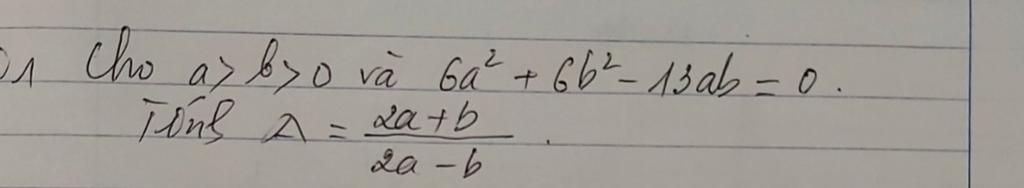 1 Cho a > b > 0 và 6a² + 6b² - 13ab = 0.
Tính A = (2a + b)/(2a - b).